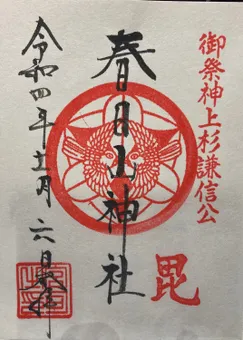 御祭神上杉謙信公
春日山神社
毘
令和四年十一月六日奉拝